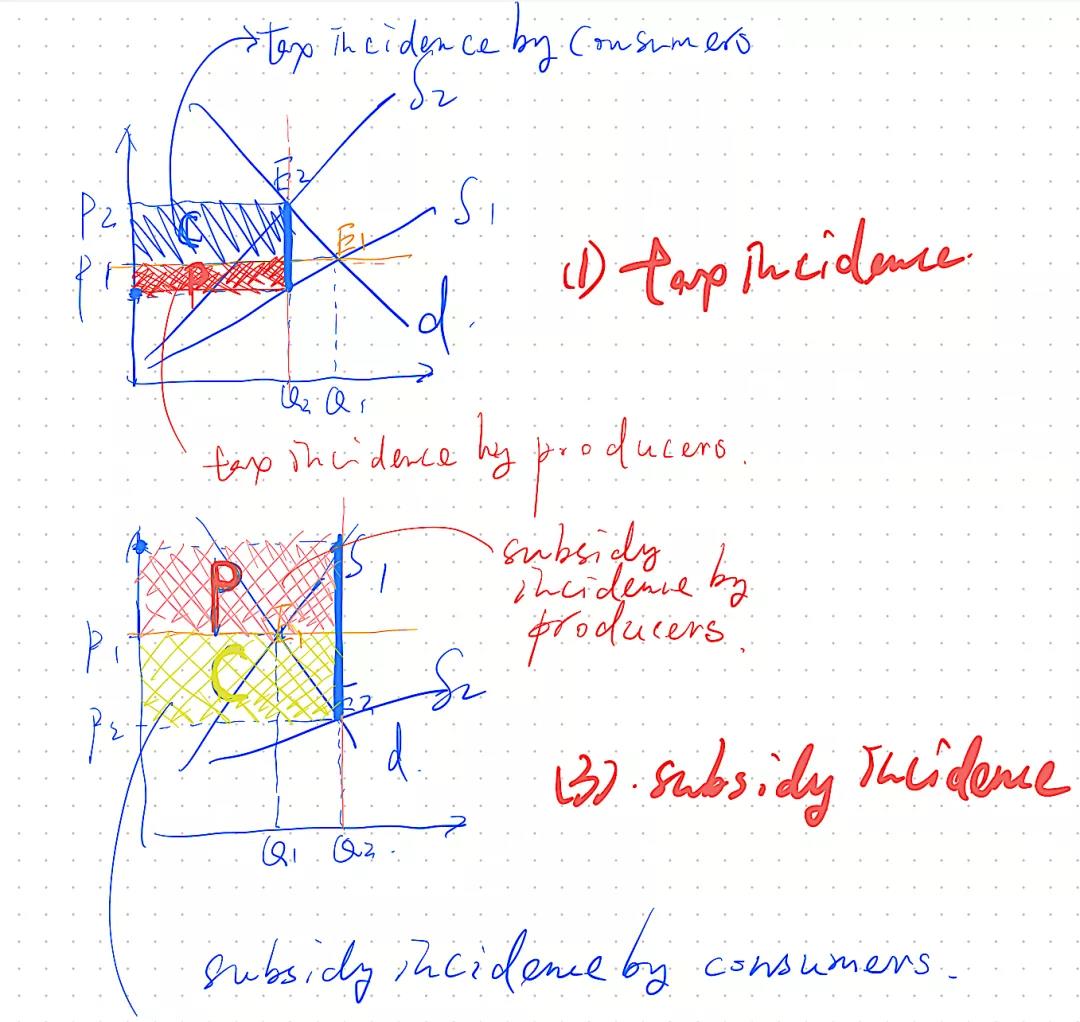 tax incidence by consumers
S2
E2
P2
C
S1
E1
P1
P
(1) tax incidence.
d.
Q2 Q1
tax incidence by producers.
S1
P
subsidy
incidence by
producers.
E1
P1
C
S2
E2
P2
d.
(3). subsidy incidence
Q1 Q2.
subsidy incidence by consumers.